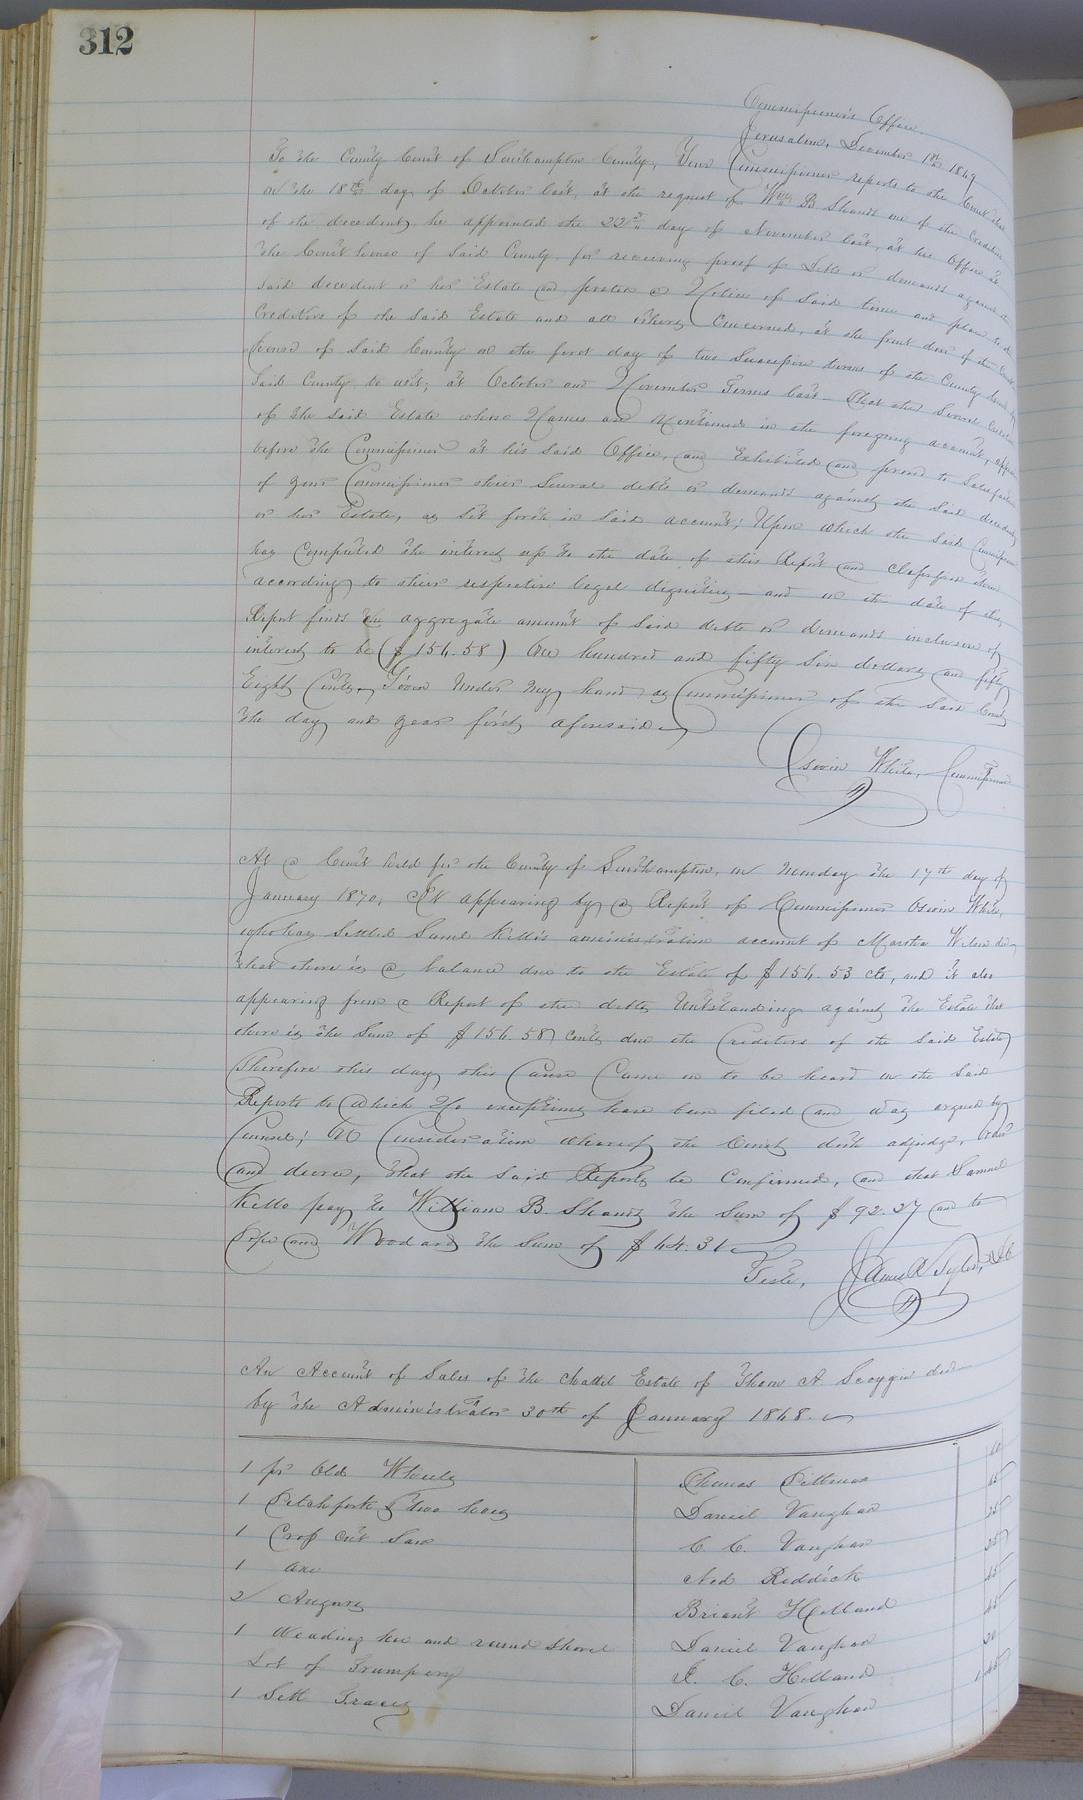 312
Commissioner's Office.
Jerusalem, December 1st 1869
To the County Court of Southampton County, Your Commissioner reports to the Court that
on the 18th day of October last, at the request of Wm B Shands one of the Creditors
of the decedent, he appointed the 22d day of November last, at his Office at
the Court house of Said County for receiving proof of Debts or demands against the
said decedent or her Estate and posted a Notice of Said time and place to the
Creditors of the Said Estate and all others Concerned, at the front door of the Court
house of Said County on the first day of two Successive terms of the County Court of
Said County to wit; at October and November Terms last – That the Several Creditors
of the said Estate whose Names are Mentioned in the foregoing account, appeared
before the Commissioner at his said Office, and Exhibited and proved to Satisfaction
of your Commissioner their Several debts or demands against the said decedent
or her Estate, as Set forth in Said account; Upon which the said Commissioner
has Computed the interest up to the date of this Report and Classified them
according to their respective legal dignities – and on the date of this
Report finds the aggregate amount of Said debts or demands inclusive of
interest to be ($156.58) One hundred and fifty Six dollars and fifty
Eight Cents, Given Under My hand as Commissioner of the Said County
the day and year first aforesaid
Osvin White, Commissioner
At a Court held for the County of Southampton, on Monday the 17th day of
January 1870, It appearing by a Report of Commissioner Osvin White,
who has Settled Saml Kello's administration account of Martha Wilson dec
that there is a balance due to the Estate of $156.53 cts, and it also
appearing from a Report of the debts Outstanding against the Estate that
there is the Sum of $156.58 Cents due the Creditors of the Said Estate
Therefore this day this Cause Came on to be heard on the Said
Reports to which No exceptions have been filed and was argued by
Counsel; On Consideration whereof the Court doth adjudge, Order
and decree, that the said Reports be Confirmed, and that Samuel
Kello pay to William B. Shands the Sum of $92.27 and to
Pope and Woodard the Sum of $64.31
Teste, James R Tyler, D.C.
An Account of Sales of the Chattel Estate of Thom A. Scoggin dec
by the Administrator 30th of January 1868.
1 pr Old Wheels Thomas Pittman 10
1 Pitchfork & two hoes Daniel Vaughan 15
1 Cross Cut Saw C. C. Vaughan 25
1 axe Ned Riddick 25
2 Augurs Briant Holland 15
1 Weading hoe and round Shovel Daniel Vaughan 15
Lot of Trumpery J. C. Holland 20
1 Sett Traces Daniel Vaughan 1